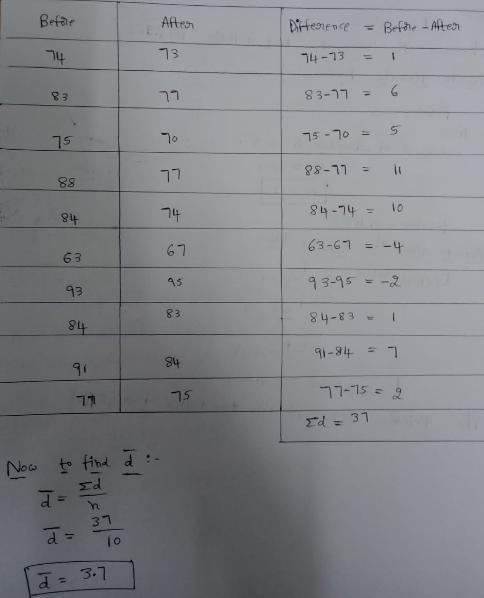 Before After Difference = Before - After
74 73 74-73 = 1
83 77 83-77 = 6
75 70 75-70 = 5
88 77 88-77 = 11
84 74 84-74 = 10
63 67 63-67 = -4
93 95 93-95 = -2
84 83 84-83 = 1
91 84 91-84 = 7
77 75 77-75 = 2
Σd = 37
Now to find d̅ :-
d̅ = Σd/n
d̅ = 37/10
d̅ = 3.7